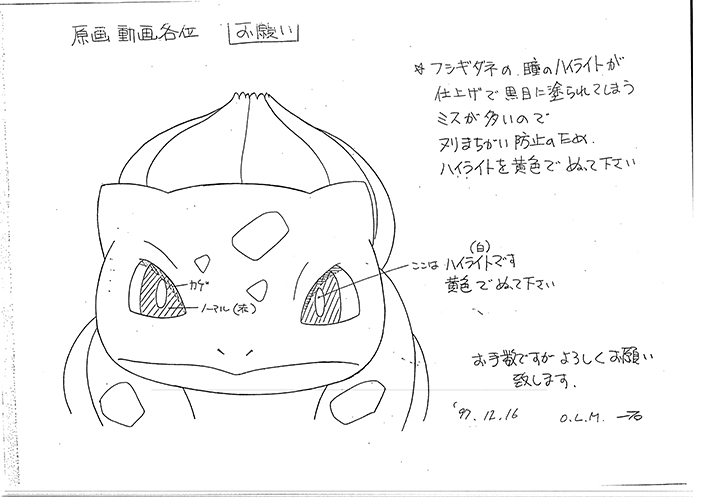 原画 動画各位 お願い
☆フシギダネの、瞳のハイライトが
仕上げで黒目に塗られてしまう
ミスが多いので
ヌリまちがい防止のため、
ハイライトを黄色でぬって下さい
(白)
ここは ハイライトです
黄色でぬって下さい
カゲ
ノーマル(赤)
お手数ですがよろしくお願い
致します.
'97.12.16 O.L.M.